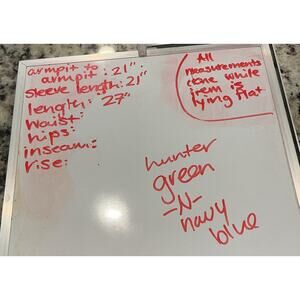 armpit to
armpit: 21"
sleeve length: 21"
length: 27"
waist:
hips:
inseam:
rise:
All
measurements
done while
item is
lying flat
hunter
green
-N-
navy
blue